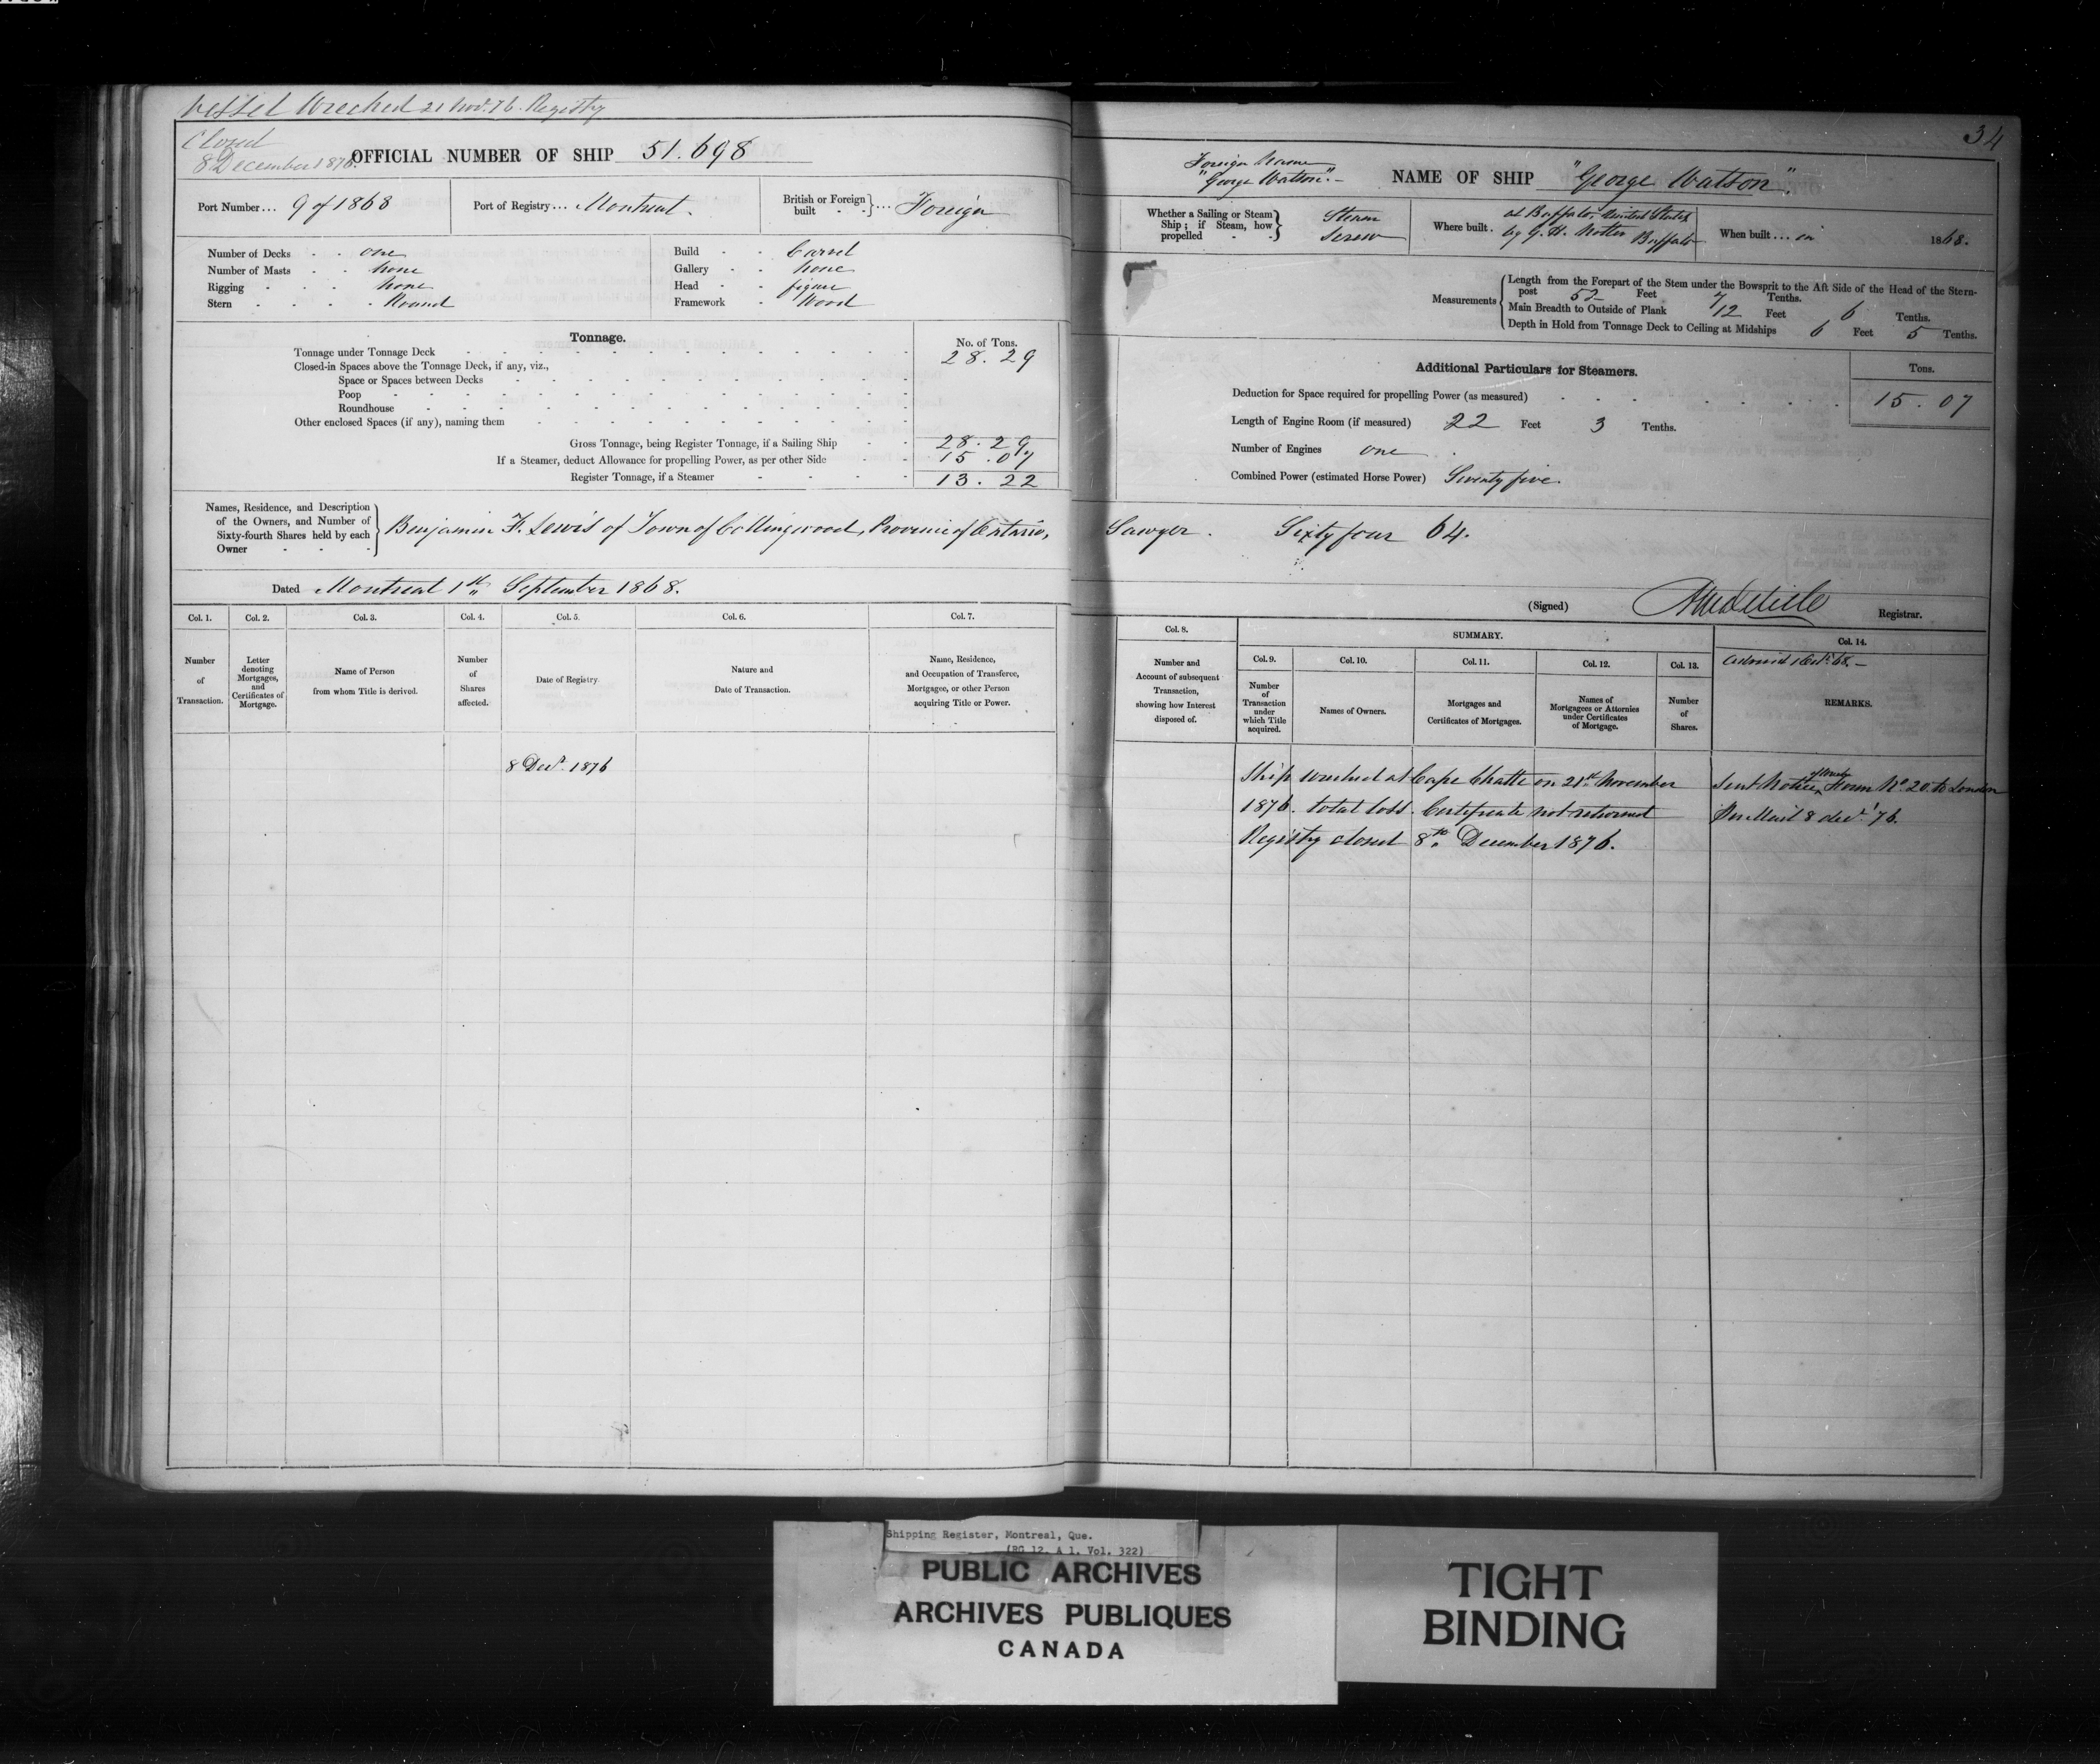 Vessel Wrecked 21 Nov. 76. Registry
Closed
8 December 1876.
OFFICIAL NUMBER OF SHIP 51.698
Port Number... 9 of 1868
Port of Registry... Montreal.
British or Foreign built } ... Foreign
Number of Decks one
Number of Masts none
Rigging none
Stern Round
Build Carvel
Gallery none
Head figure
Framework Wood
Tonnage.
No. of Tons.
Tonnage under Tonnage Deck 28.29
Closed-in Spaces above the Tonnage Deck, if any, viz.,
Space or Spaces between Decks
Poop
Roundhouse
Other enclosed Spaces (if any), naming them
Gross Tonnage, being Register Tonnage, if a Sailing Ship 28.29
If a Steamer, deduct Allowance for propelling Power, as per other Side 15.07
Register Tonnage, if a Steamer 13.22
Names, Residence, and Description
of the Owners, and Number of
Sixty-fourth Shares held by each
Owner
Benjamin F. Lewis of Town of Collingwood, Province of Ontario,
Dated Montreal 1st September 1868.
Col. 1. Col. 2. Col. 3. Col. 4. Col. 5. Col. 6. Col. 7.
Number
of
Transaction.
Letter
denoting
Mortgages,
and
Certificates of
Mortgage.
Name of Person
from whom Title is derived.
Number
of
Shares
affected.
Date of Registry.
Nature and
Date of Transaction.
Name, Residence,
and Occupation of Transferee,
Mortgagee, or other Person
acquiring Title or Power.
8 Decr. 1876
34
Foreign Name
"George Watson".
NAME OF SHIP "George Watson".
Whether a Sailing or Steam
Ship; if Steam, how
propelled
Steam
Screw
Where built. at Buffalo, United States
by G. H. Notter Buffalo
When built... in 1868.
Measurements
Length from the Forepart of the Stem under the Bowsprit to the Aft Side of the Head of the Stern-
post 52 Feet 7 Tenths.
Main Breadth to Outside of Plank 12 Feet 6 Tenths.
Depth in Hold from Tonnage Deck to Ceiling at Midships 6 Feet 5 Tenths.
Additional Particulars for Steamers.
Tons.
Deduction for Space required for propelling Power (as measured) 15.07
Length of Engine Room (if measured) 22 Feet 3 Tenths.
Number of Engines one
Combined Power (estimated Horse Power) Seventy five.
Sawyer. Sixty four 64.
(Signed) Registrar.
Col. 8.
Number and
Account of subsequent
Transaction,
showing how Interest
disposed of.
SUMMARY.
Col. 9. Col. 10. Col. 11. Col. 12. Col. 13.
Number
of
Transaction
under
which Title
acquired.
Names of Owners.
Mortgages and
Certificates of Mortgages.
Names of
Mortgagees or Attornies
under Certificates
of Mortgage.
Number
of
Shares.
Col. 14.
REMARKS.
Ship wrecked at Cape Chatte on 21st November
1876. total loss. Certificate not returned
Registry closed 8th December 1876.
Sent Notice Form No. 20 to London
Per Mail 8 decr. '76.
Shipping Register, Montreal, Que.
(RG 12, A 1, Vol. 322)
PUBLIC ARCHIVES
ARCHIVES PUBLIQUES
CANADA
TIGHT
BINDING